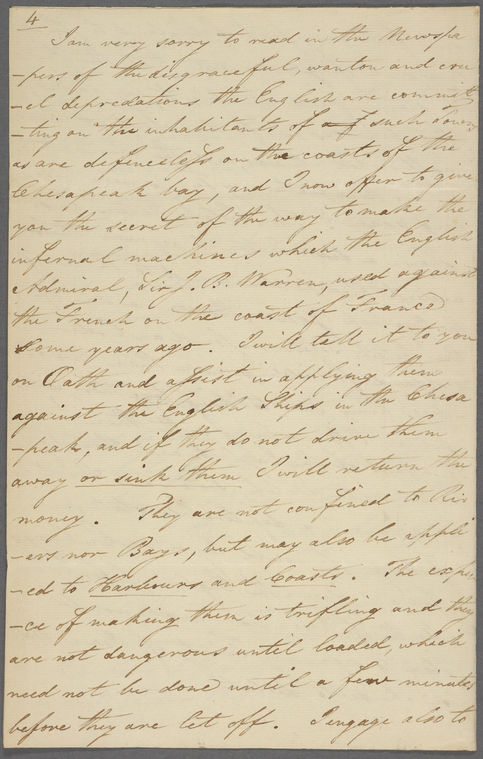 4
I am very sorry to read in the Newspa
-pers of the disgraceful, wanton and cru
-el depredations the English are commit
-ting on the inhabitants of such Towns
as are defenceless on the coasts of the
Chesapeak bay, and I now offer to give
you the secret of the way to make the
infernal machines which the English
Admiral, Sir J. B. Warren, used against
the French on the coast of France
some years ago. I will tell it to you
on Oath and assist in applying them
against the English Ships in the Chesa
-peak, and if they do not drive them
away or sink them I will return the
money. They are not confined to Riv
-ers nor Bays, but may also be appli
-ed to Harbours and Coasts. The expen
-ce of making them is trifling and they
are not dangerous until loaded, which
need not be done until a few minutes
before they are let off. I engage also to